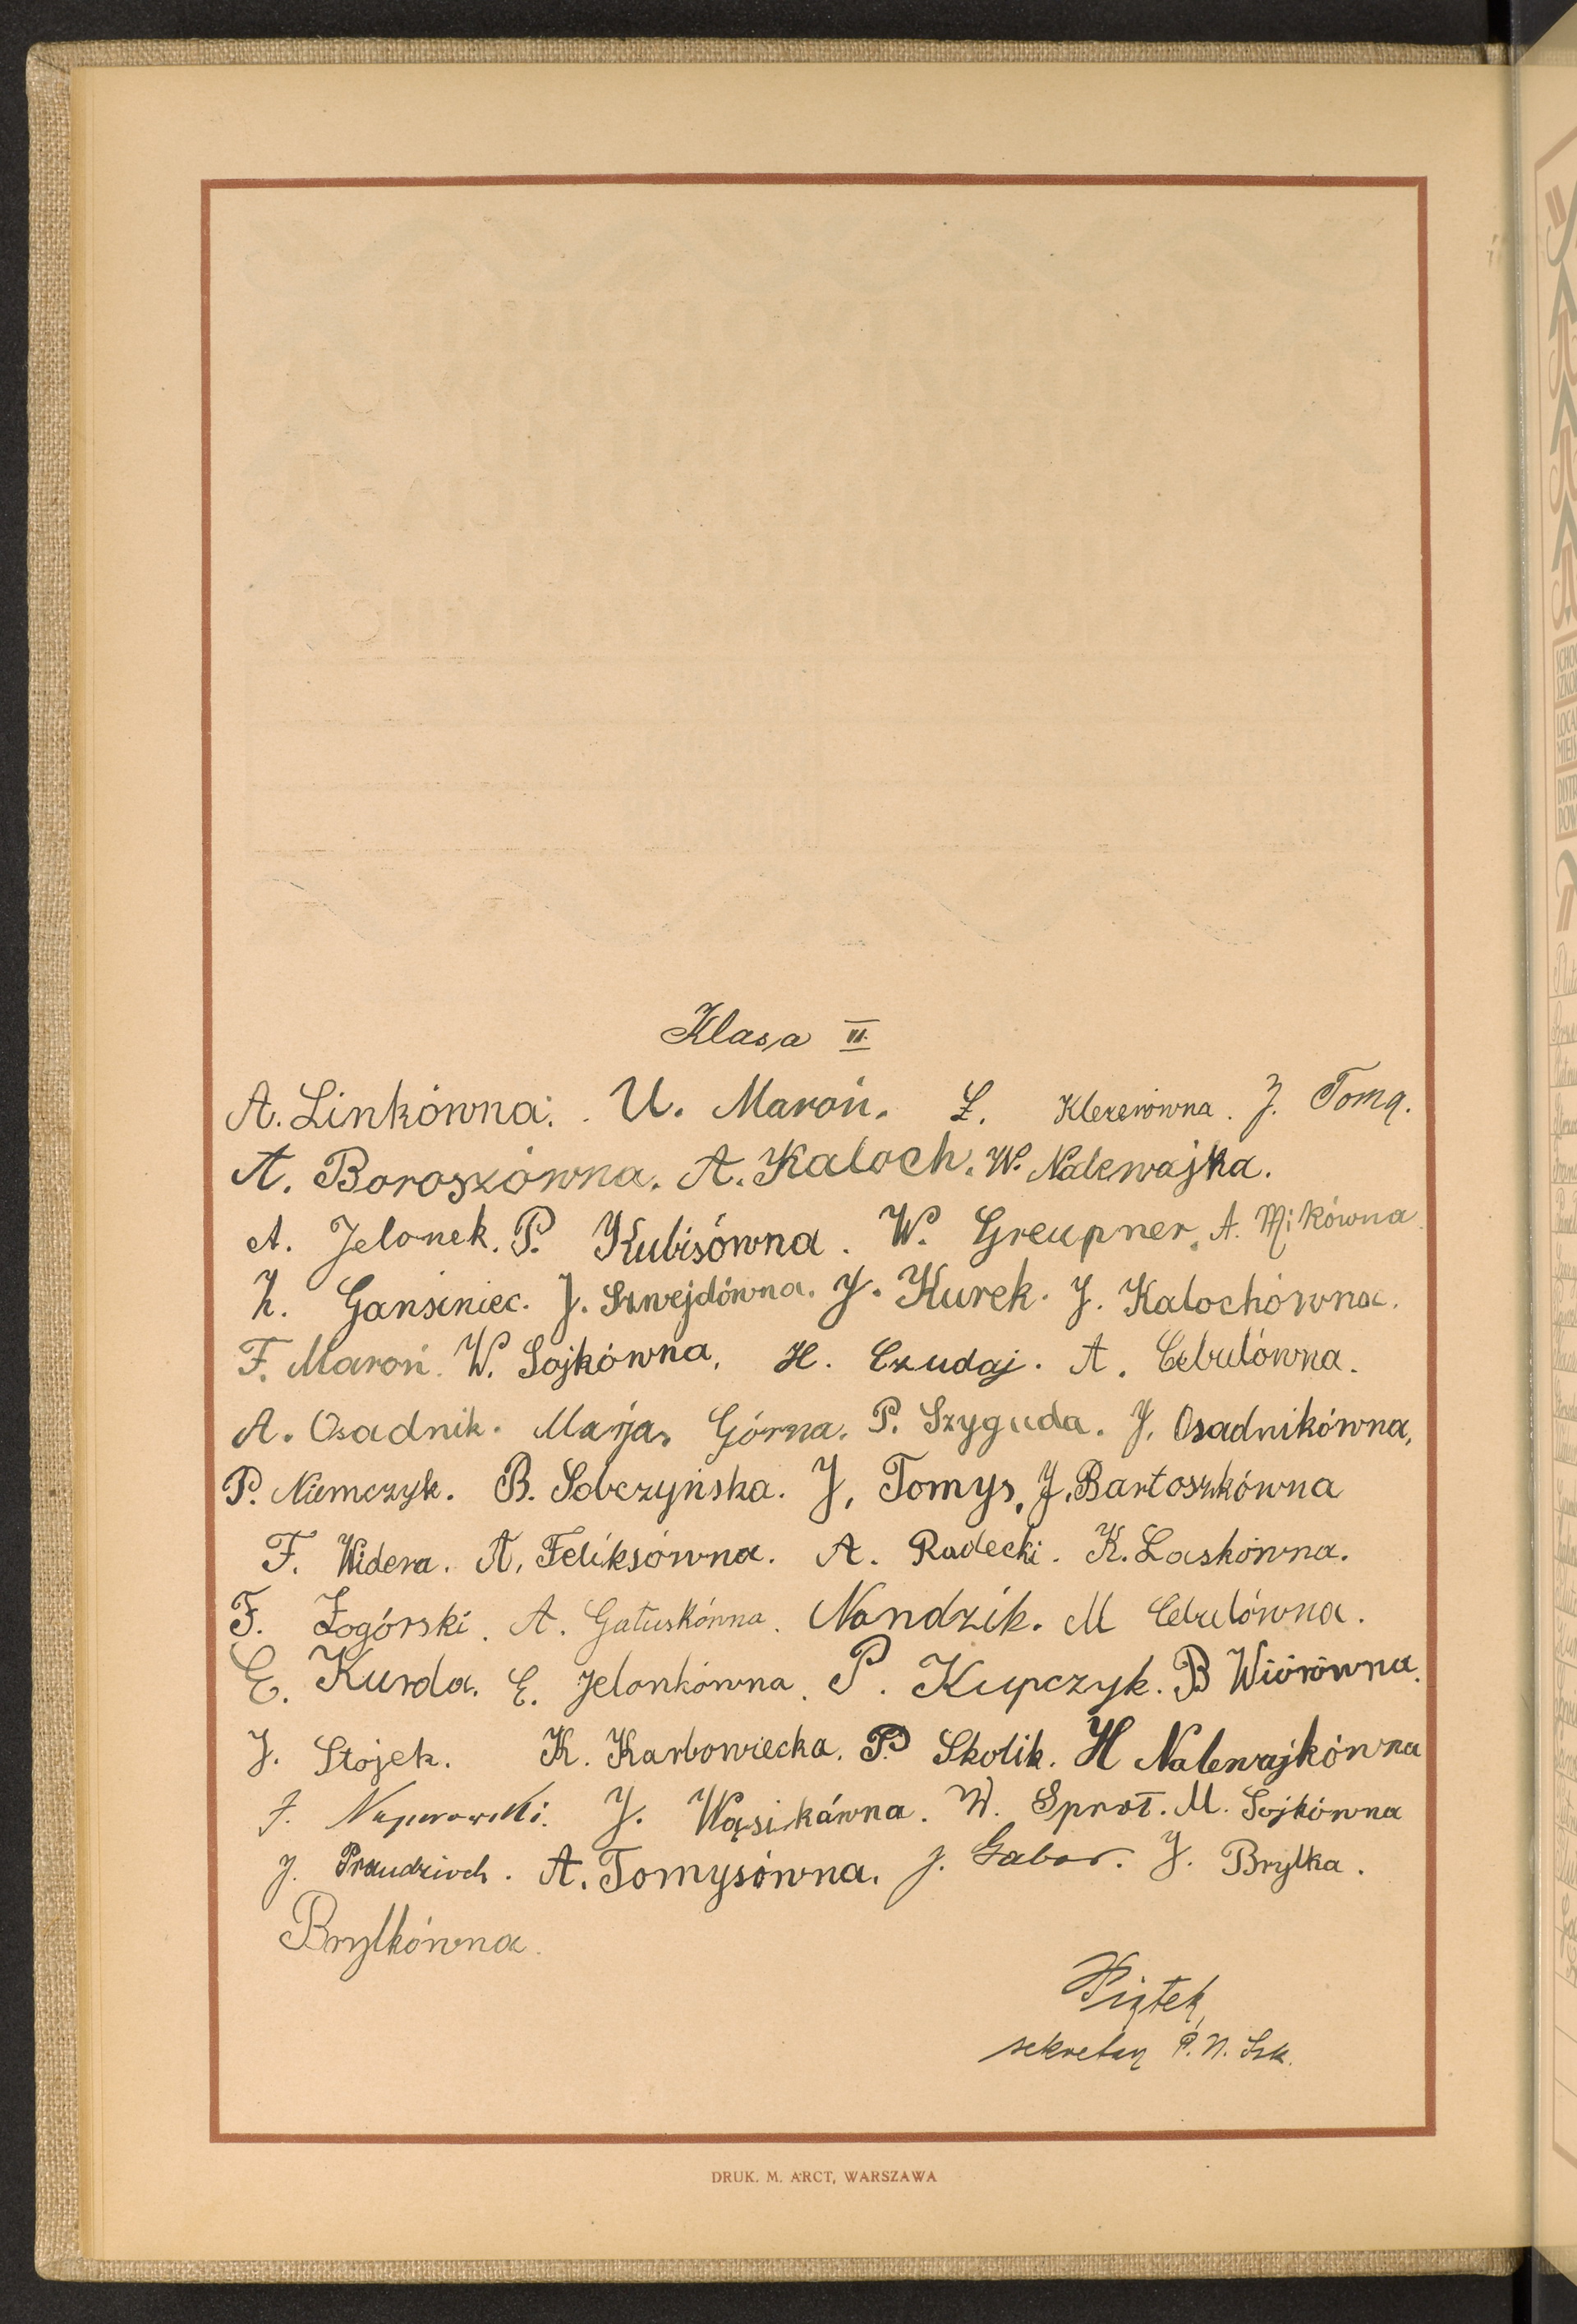 Klasa VI.
A. Linkówna. U. Maroń. Ł. Klerewówna. J. Tomą.
A. Boroszówna. A. Kaloch. W. Nalewajka.
A. Jelonek. P. Kubisówna. W. Greupner. A. Mikówna
h. Gansiniec. J. Szwejdówna. J. Kurek. J. Kalochówna.
F. Maroń. W. Sojkówna. H. Czudaj. A. Cebulówna.
A. Osadnik. Marja. Górna. P. Szyguda. J. Osadnikówna,
P. Niemczyk. B. Sobczyńska. J. Tomys, J. Bartoszkówna
F. Widera. A. Feliksówna. A. Radecki. K. Laskówna.
F. Zogórski. A. Gałuskówna. Nandzik. M Cebulówna.
E. Kurda. E. Jelonkówna. P. Kupczyk. B Wiórówna.
J. Stojek. K. Karbowiecka. P. Skolik. H Nalewajkówna
J. Wąsikówna. W. Sprot. M. Sojkówna
J. A. Tomysówna. J. Gabor. J. Brylka.
Brylkówna.
Piątek,
sekretarz P. N. Szk.
DRUK. M. ARCT, WARSZAWA